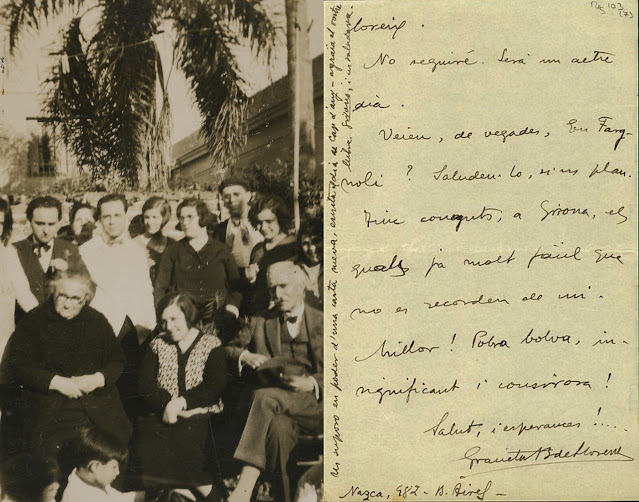 Reg 103
(7)
lloreix.
No seguiré. Será un actre
dia.
Veieu, de vegades, En Farg-
noli? Saludeu-lo, si us plau.
Tinc coneguts, a Girona, els
quals ja molt fácil que
no es recorden de mi.
Millor! Pobra bolva, in-
significant i consirosa!
Salut, i esperances!....
Graciela B de Llorens
Nazca, 982 - B. Aires -
Us suposo en poder d'una carta meva, escrita el dia de cap d'any - agraia el vostre
llibre